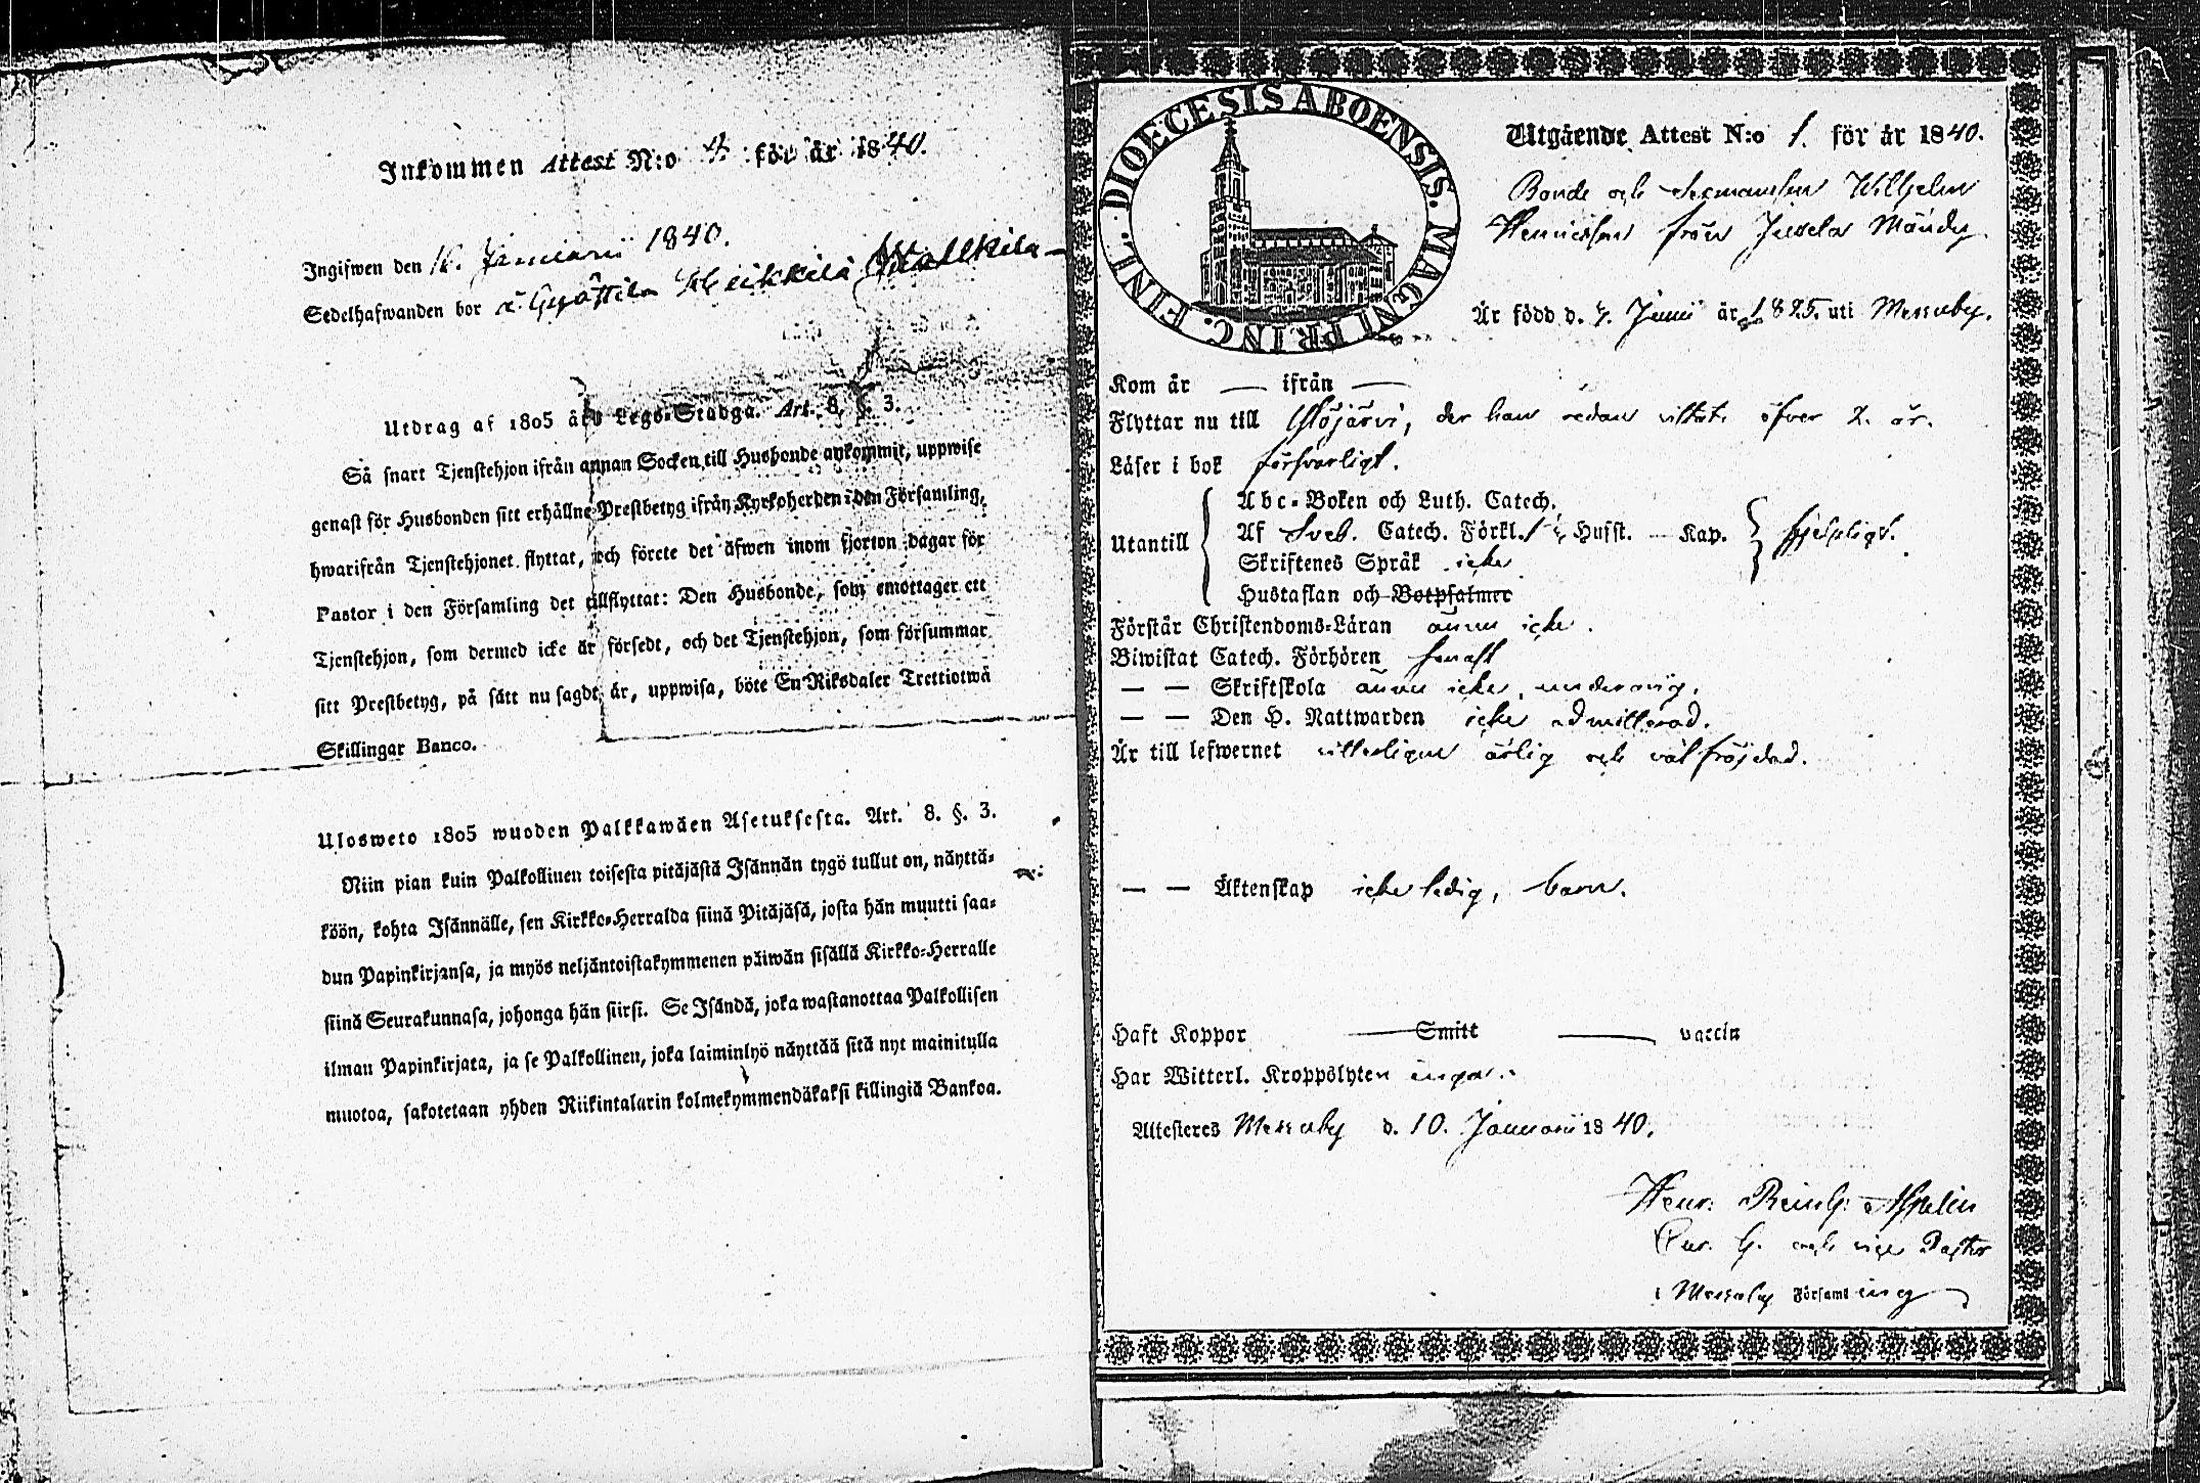 Inkommen Attest N:o 4. för år 1840.
Ingifwen den 16. Januarii 1840.
Sedelhafwanden bor i Heikkilä
Utdrag af 1805 års Lego-Stadga. Art. 8. §. 3.
Så snart Tjenstehjon ifrån annan Socken till Husbonde ankommit, uppwise
genast för Husbonden sitt erhållne Prestbetyg ifrån Kyrkoherden i den Församling,
hwarifrån Tjenstehjonet flyttat, och förete det äfwen inom fjorton dagar för
Pastor i den Församling det tillflyttat: Den Husbonde, som emottager ett
Tjenstehjon, som dermed icke är försedt, och det Tjenstehjon, som försummar
sitt Prestbetyg, på sätt nu sagdt är, uppwisa, böte En Riksdaler Trettiotwå
Skillingar Banco.
Ulosweto 1805 wuoden Palkkawäen Asetuksesta. Art. 8. §. 3.
Niin pian kuin Palkollinen toisesta pitäjästä Isännän tygö tullut on, näyttä-
köön, kohta Isännälle, sen Kirkko-Herralda siinä Pitäjäsä, josta hän muutti saa-
dun Papinkirjansa, ja myös neljäntoistakymmenen päiwän sisällä Kirkko-Herralle
siinä Seurakunnasa, johonga hän siirsi. Se Isändä, joka wastanottaa Palkollisen
ilman Papinkirjata, ja se Palkollinen, joka laiminlyö näyttää sitä nyt mainitulla
muotoa, sakotetaan yhden Riikintalarin kolmekymmendäkaksi killingiä Bankoa.
DIOECESIS ABOENSIS. MAGNI PRINC. FINL.
Utgående Attest N:o 1. för år 1840.
Bonde och Wilhelm
Henricson från Jussela
Är född d. 4. Junii år 1825. uti Messuby.
Kom år — ifrån —
Flyttar nu till Ylöjärvi, der han redan vistats öfver 2. år.
Läser i bok försvarligt.
Utantill
Abc-Boken och Luth. Catech.
Af Sveb. Catech. Förkl. Hufst. — Kap.
hjelpligt.
Skriftenes Språk icke
Hustaflan och Botpsalmer
Förstår Christendoms-Läran ännu icke.
Biwistat Catech. Förhören senast
— — Skriftskola ännu icke, undervisig.
— — Den H. Nattwarden icke admitterad.
Är till lefwernet vitterligen ärlig och välfräjdad.
— — Äktenskap icke ledig, barn.
Haft Koppor — Smitt — vaccin
Har Witterl. Kroppslyten inga.
Attesteres Messuby d. 10. Januarii 1840.
Henr. Reinh. Aspelin
och vice Pastor
i Messuby Församling